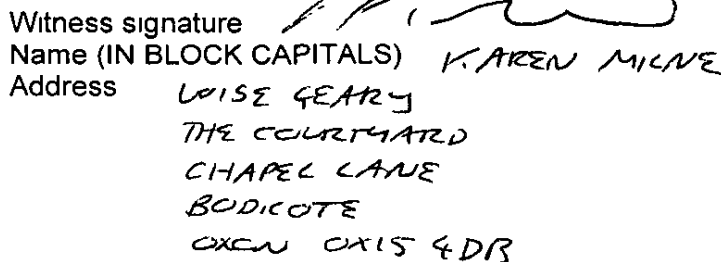 Witness signature
Name (IN BLOCK CAPITALS) KAREN MILNE
Address WISE GEARY
THE COURTYARD
CHAPEL LANE
BODICOTE
OXON OX15 4DB